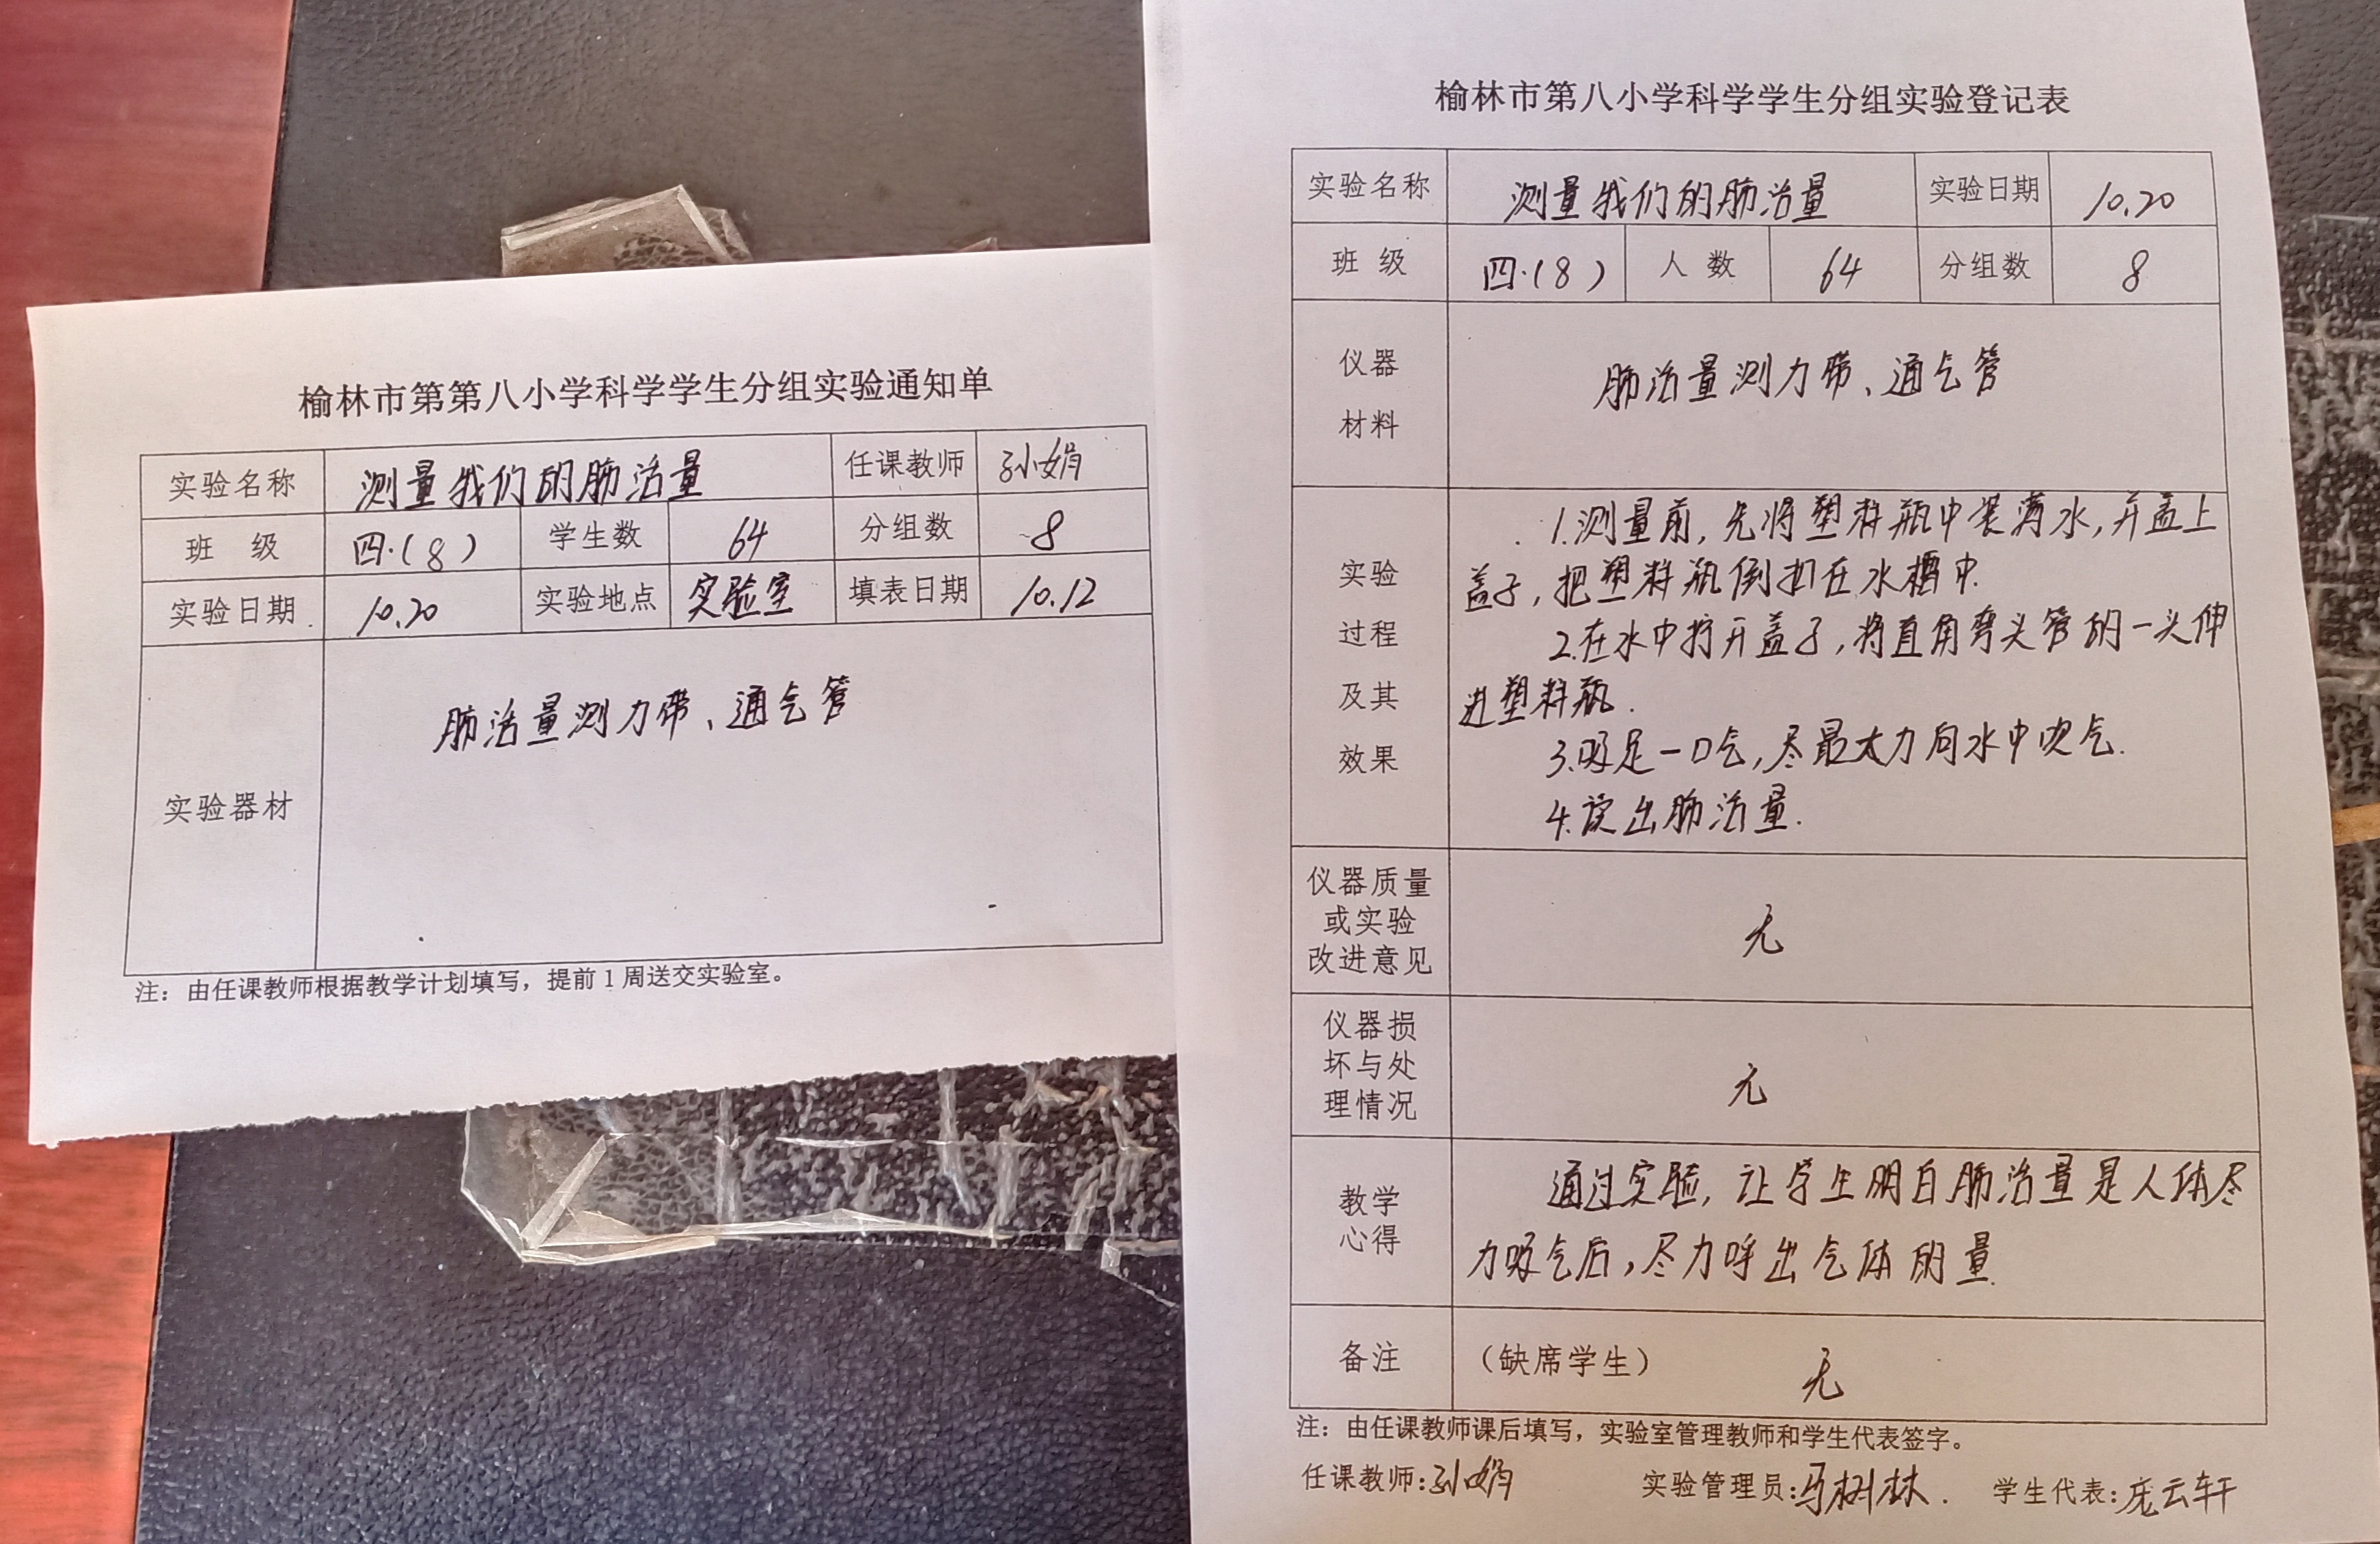 榆林市第第八小学科学学生分组实验通知单
实验名称 测量我们的肺活量 任课教师 孙娟
班 级 四.(8) 学生数 64 分组数 8
实验日期 10.20 实验地点 实验室 填表日期 10.12
实验器材 肺活量测力带、通气管
注：由任课教师根据教学计划填写，提前1周送交实验室。
榆林市第八小学科学学生分组实验登记表
实验名称 测量我们的肺活量 实验日期 10.20
班 级 四.(8) 人 数 64 分组数 8
仪器
材料
肺活量测力带、通气管
实验
过程
及其
效果
1.测量前,先将塑料瓶中装满水,并盖上
盖子,把塑料瓶倒扣在水槽中.
2.在水中拧开盖子,将直角弯头管的一头伸
进塑料瓶.
3.吸足一口气,尽最大力向水中吹气.
4.读出肺活量.
仪器质量
或实验
改进意见
无
仪器损
坏与处
理情况
无
教学
心得
通过实验,让学生明白肺活量是人体尽
力吸气后,尽力呼出气体的量.
备注 （缺席学生） 无
注：由任课教师课后填写，实验室管理教师和学生代表签字。
任课教师:孙娟 实验管理员:马树林. 学生代表:庞云轩